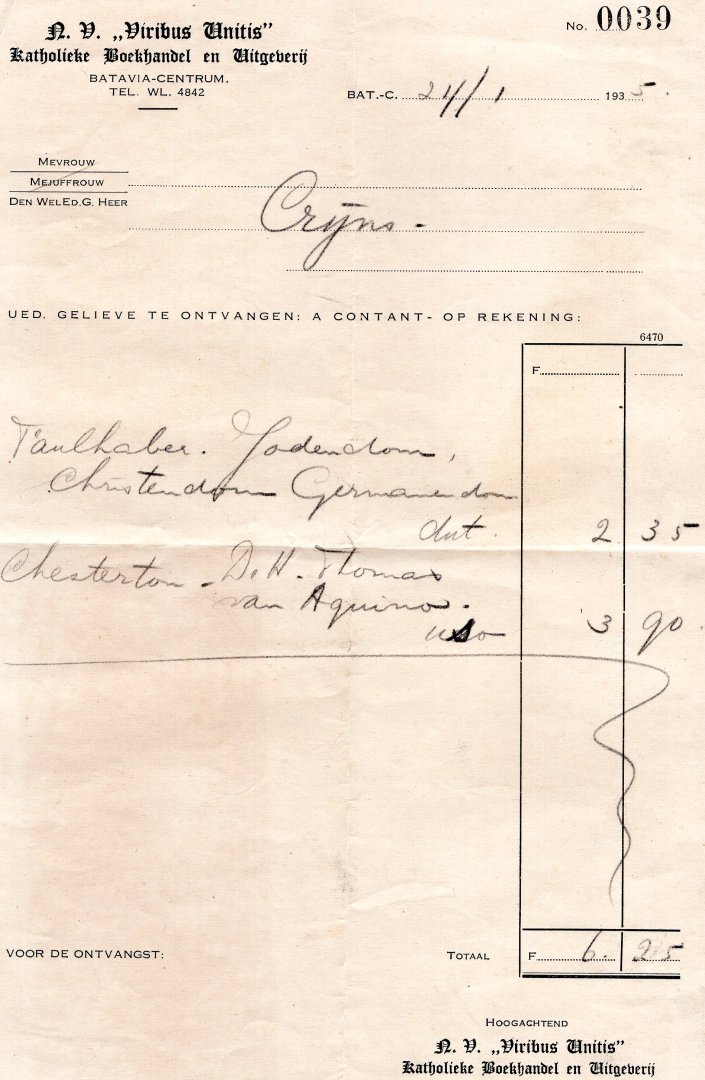 N. V. „Viribus Unitis”
No. 0039
Katholieke Boekhandel en Uitgeverij
BATAVIA-CENTRUM.
TEL. WL. 4842
BAT.-C. 24/1 1935.
MEVROUW
MEJUFFROUW
DEN WELED.G. HEER
Crÿns.
UED. GELIEVE TE ONTVANGEN: A CONTANT- OP REKENING:
6470
F
Faulhaber. Jodendom,
Christendom Germanendom
2 35
Chesterton - De H. Thomas
van Aquino.
3 90.
VOOR DE ONTVANGST:
TOTAAL F 6. 25
HOOGACHTEND
N. V. „Viribus Unitis”
Katholieke Boekhandel en Uitgeverij